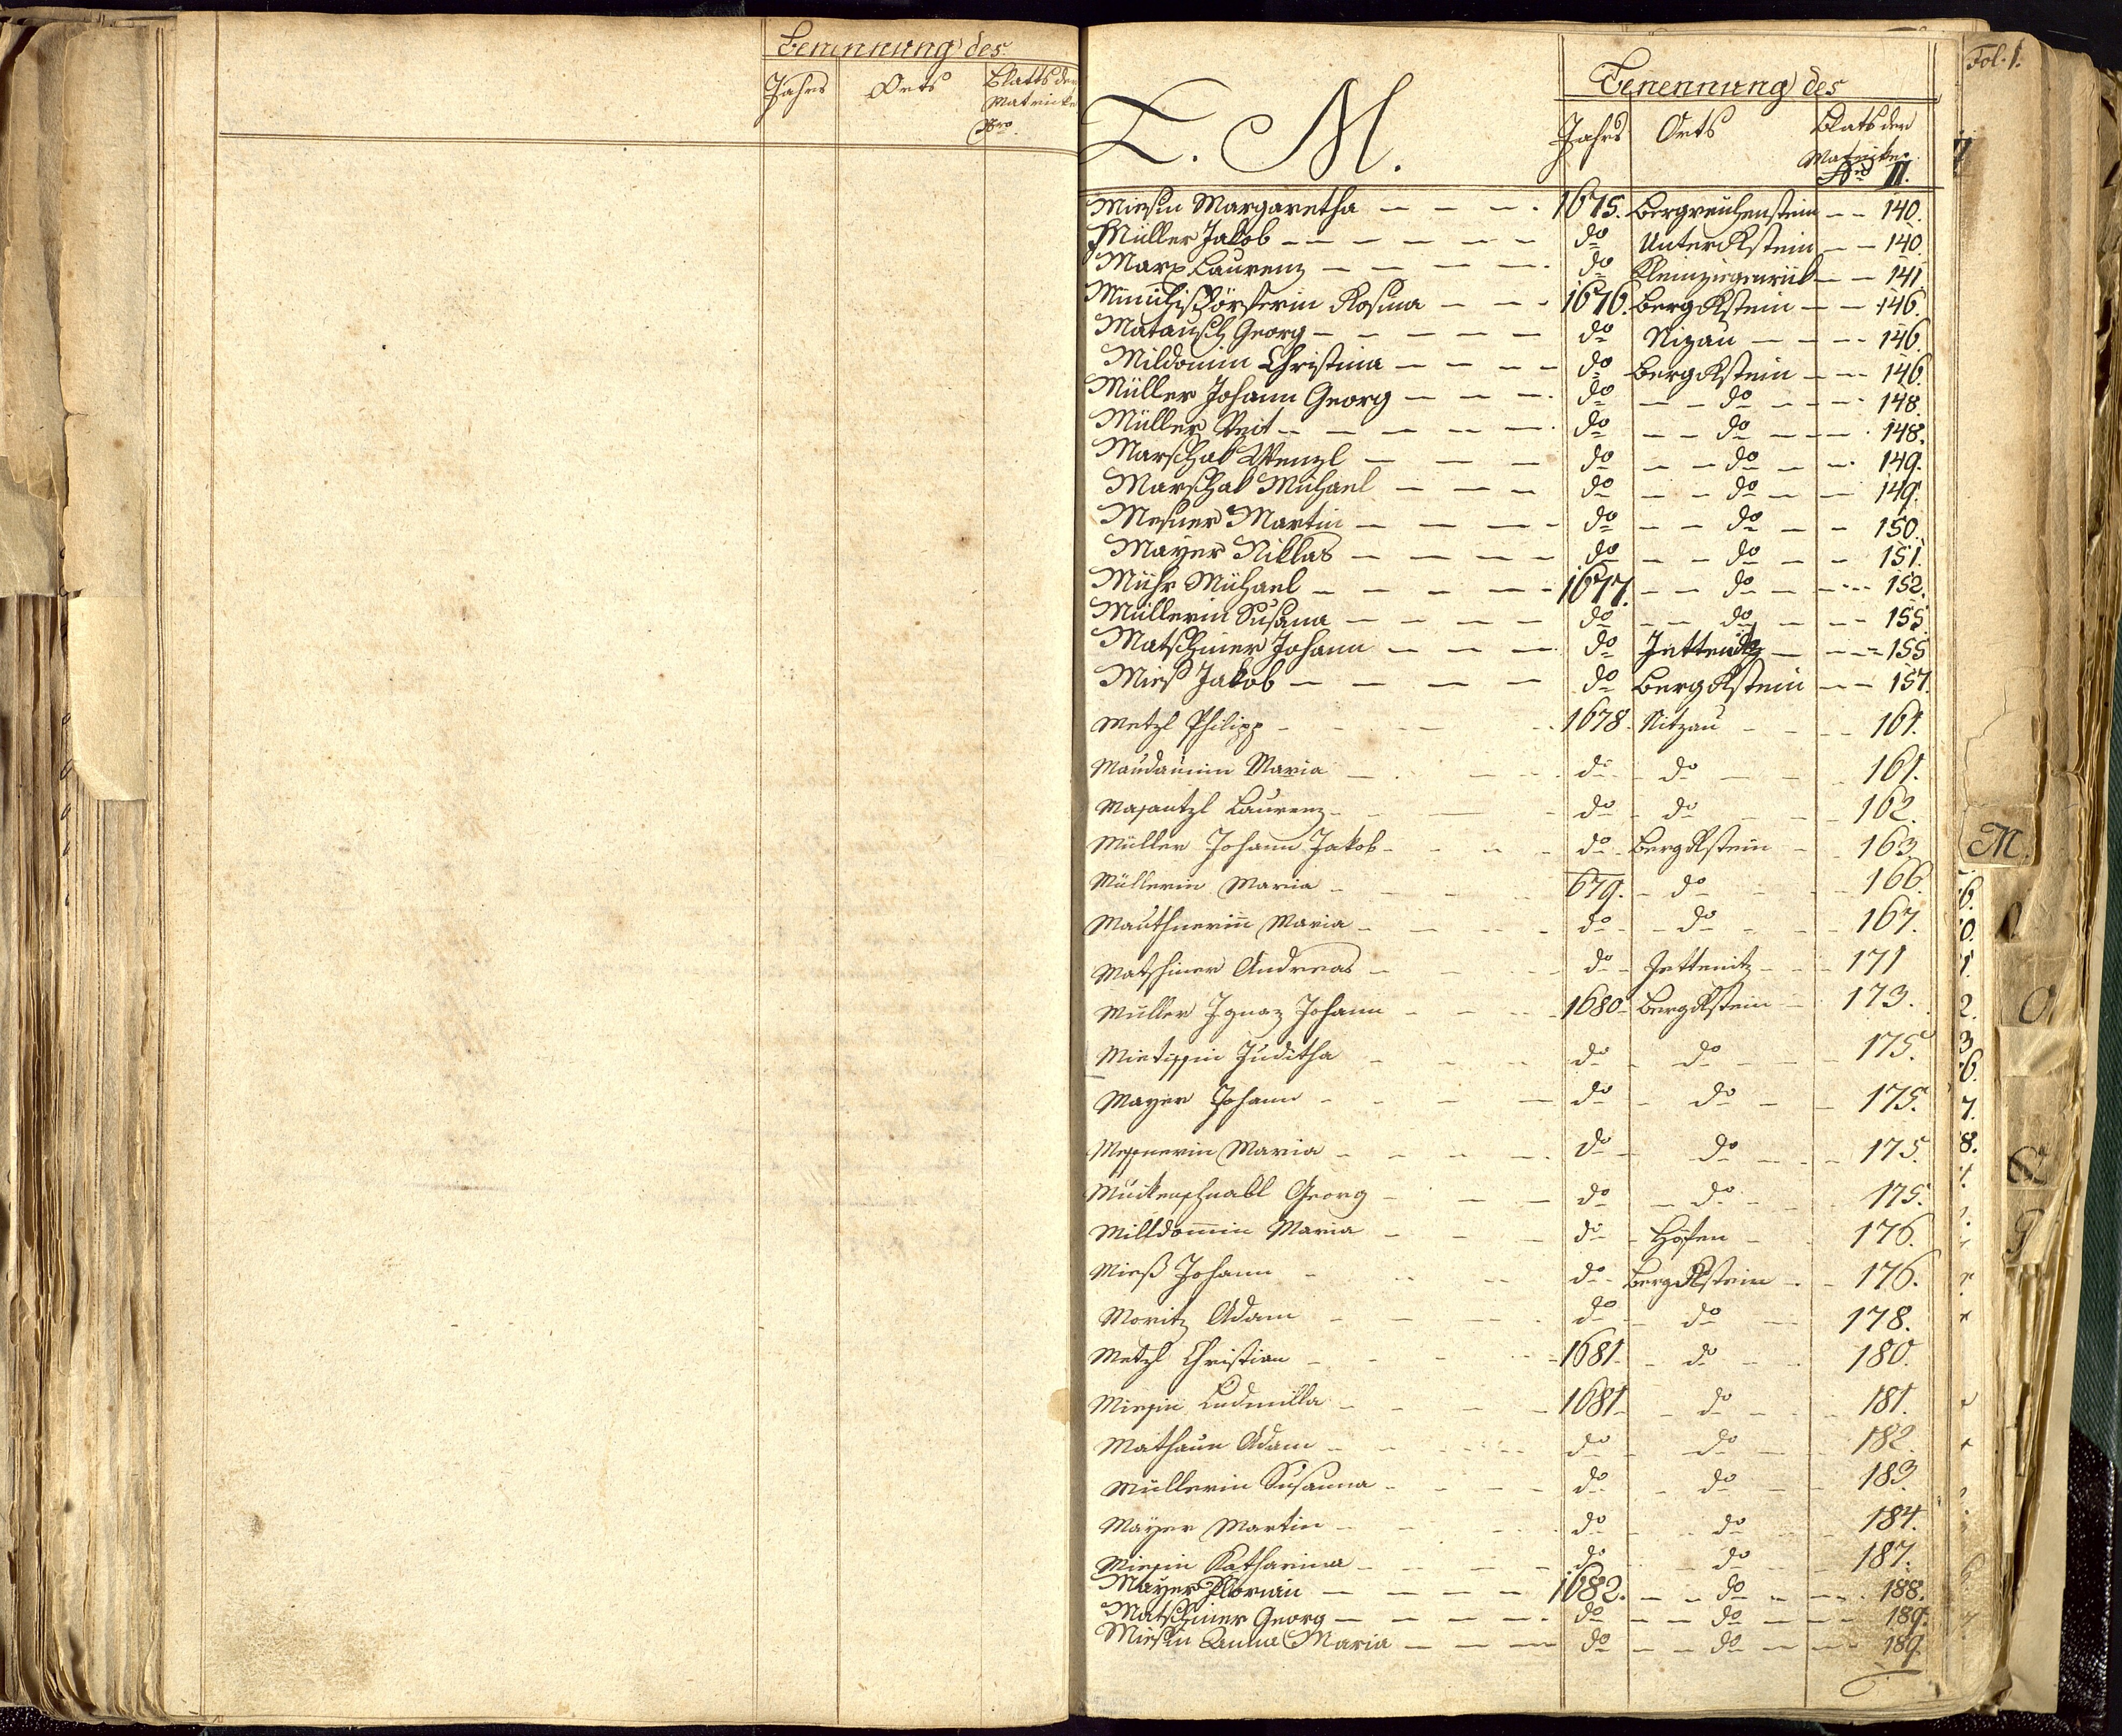 Benennung des
Jahrs Orts Blatts der
Matricke
Nro.
Fol. 1.
L. M.
Benennung des
Jahrs Orts Blats der
Matricke
Nro II.
Miesin Margaretha 1675. Bergreichenstein 140.
Müller Jakob do Unterrstein 140.
Marx Laurenz do Kleinziegenruk 141.
Rosina 1676. Bergrstein 146.
Matausch Georg do Nizau 146.
Mildomin Christina do Bergrstein 146.
Müller Johann Georg do do 148.
Müller Veit do do 148.
Marschal Wenzl do do 149.
Marschal Michael do do 149.
Mesner Martin do do 150.
Mayer Niklas do do 151.
Mühr Michael 1677. do 152.
Müllerin Susana do do 155.
Matschiner Johann do Jettenitz 155
Mies Jakob do Bergrstein 157.
Metzl Philipp 1678. Nitzau 161.
Maria do do 161.
Laurenz do do 162.
Müller Johann Jakob do Bergrstein 163.
Müllerin Maria 679. do 166.
Mauthnerin Maria do do 167.
Matschiner Andreas do Jettenitz 171
Müller Ignaz Johann 1680 Bergrstein 173.
Juditha do do 175.
Mayer Johann do do 175.
Messnerin Maria do do 175.
Muckenschnabl Georg do do 175.
Milldomin Maria do Höfen 176.
Mieß Johann do Bergrstein 176.
Moritz Adam do do 178.
Metzl Christian 1681. do 180.
Miesin Ludmilla 1681 do 181.
Adam do do 182.
Müllerin Susanna do do 183.
Mayer Martin do do 184.
Miesin Katharina do do 187.
Mayer Florian 1682. do 188.
Matschiner Georg do do 189.
Miesin Anna Maria do do 189.
M.
O.